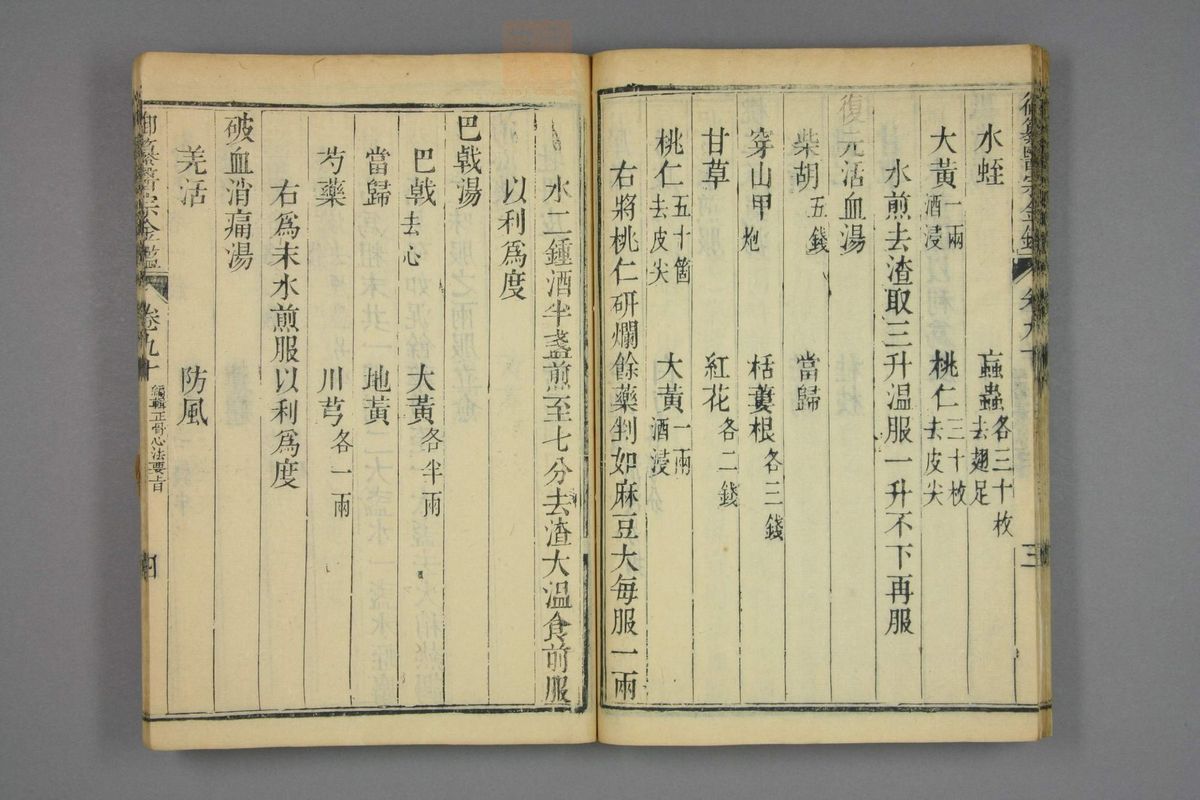 御纂醫宗金鑑 卷九十 三
水蛭 䖟蟲各三十枚去翅足
大黃一兩酒浸 桃仁三十枚去皮尖
水煎去渣取三升溫服一升不下再服
復元活血湯
柴胡五錢 當歸
穿山甲炮 栝蔞根各三錢
甘草 紅花各二錢
桃仁五十箇去皮尖 大黃一兩酒浸
右將桃仁研爛餘藥剉如麻豆大每服一兩
水二鍾酒半盞煎至七分去渣大溫食前服
以利爲度
巴戟湯
巴戟去心 大黃各半兩
當歸 地黃
芍藥 川芎各一兩
右爲末水煎服以利爲度
破血消痛湯
羌活 防風
御纂醫宗金鑑 卷九十 編輯正骨心法要旨 四